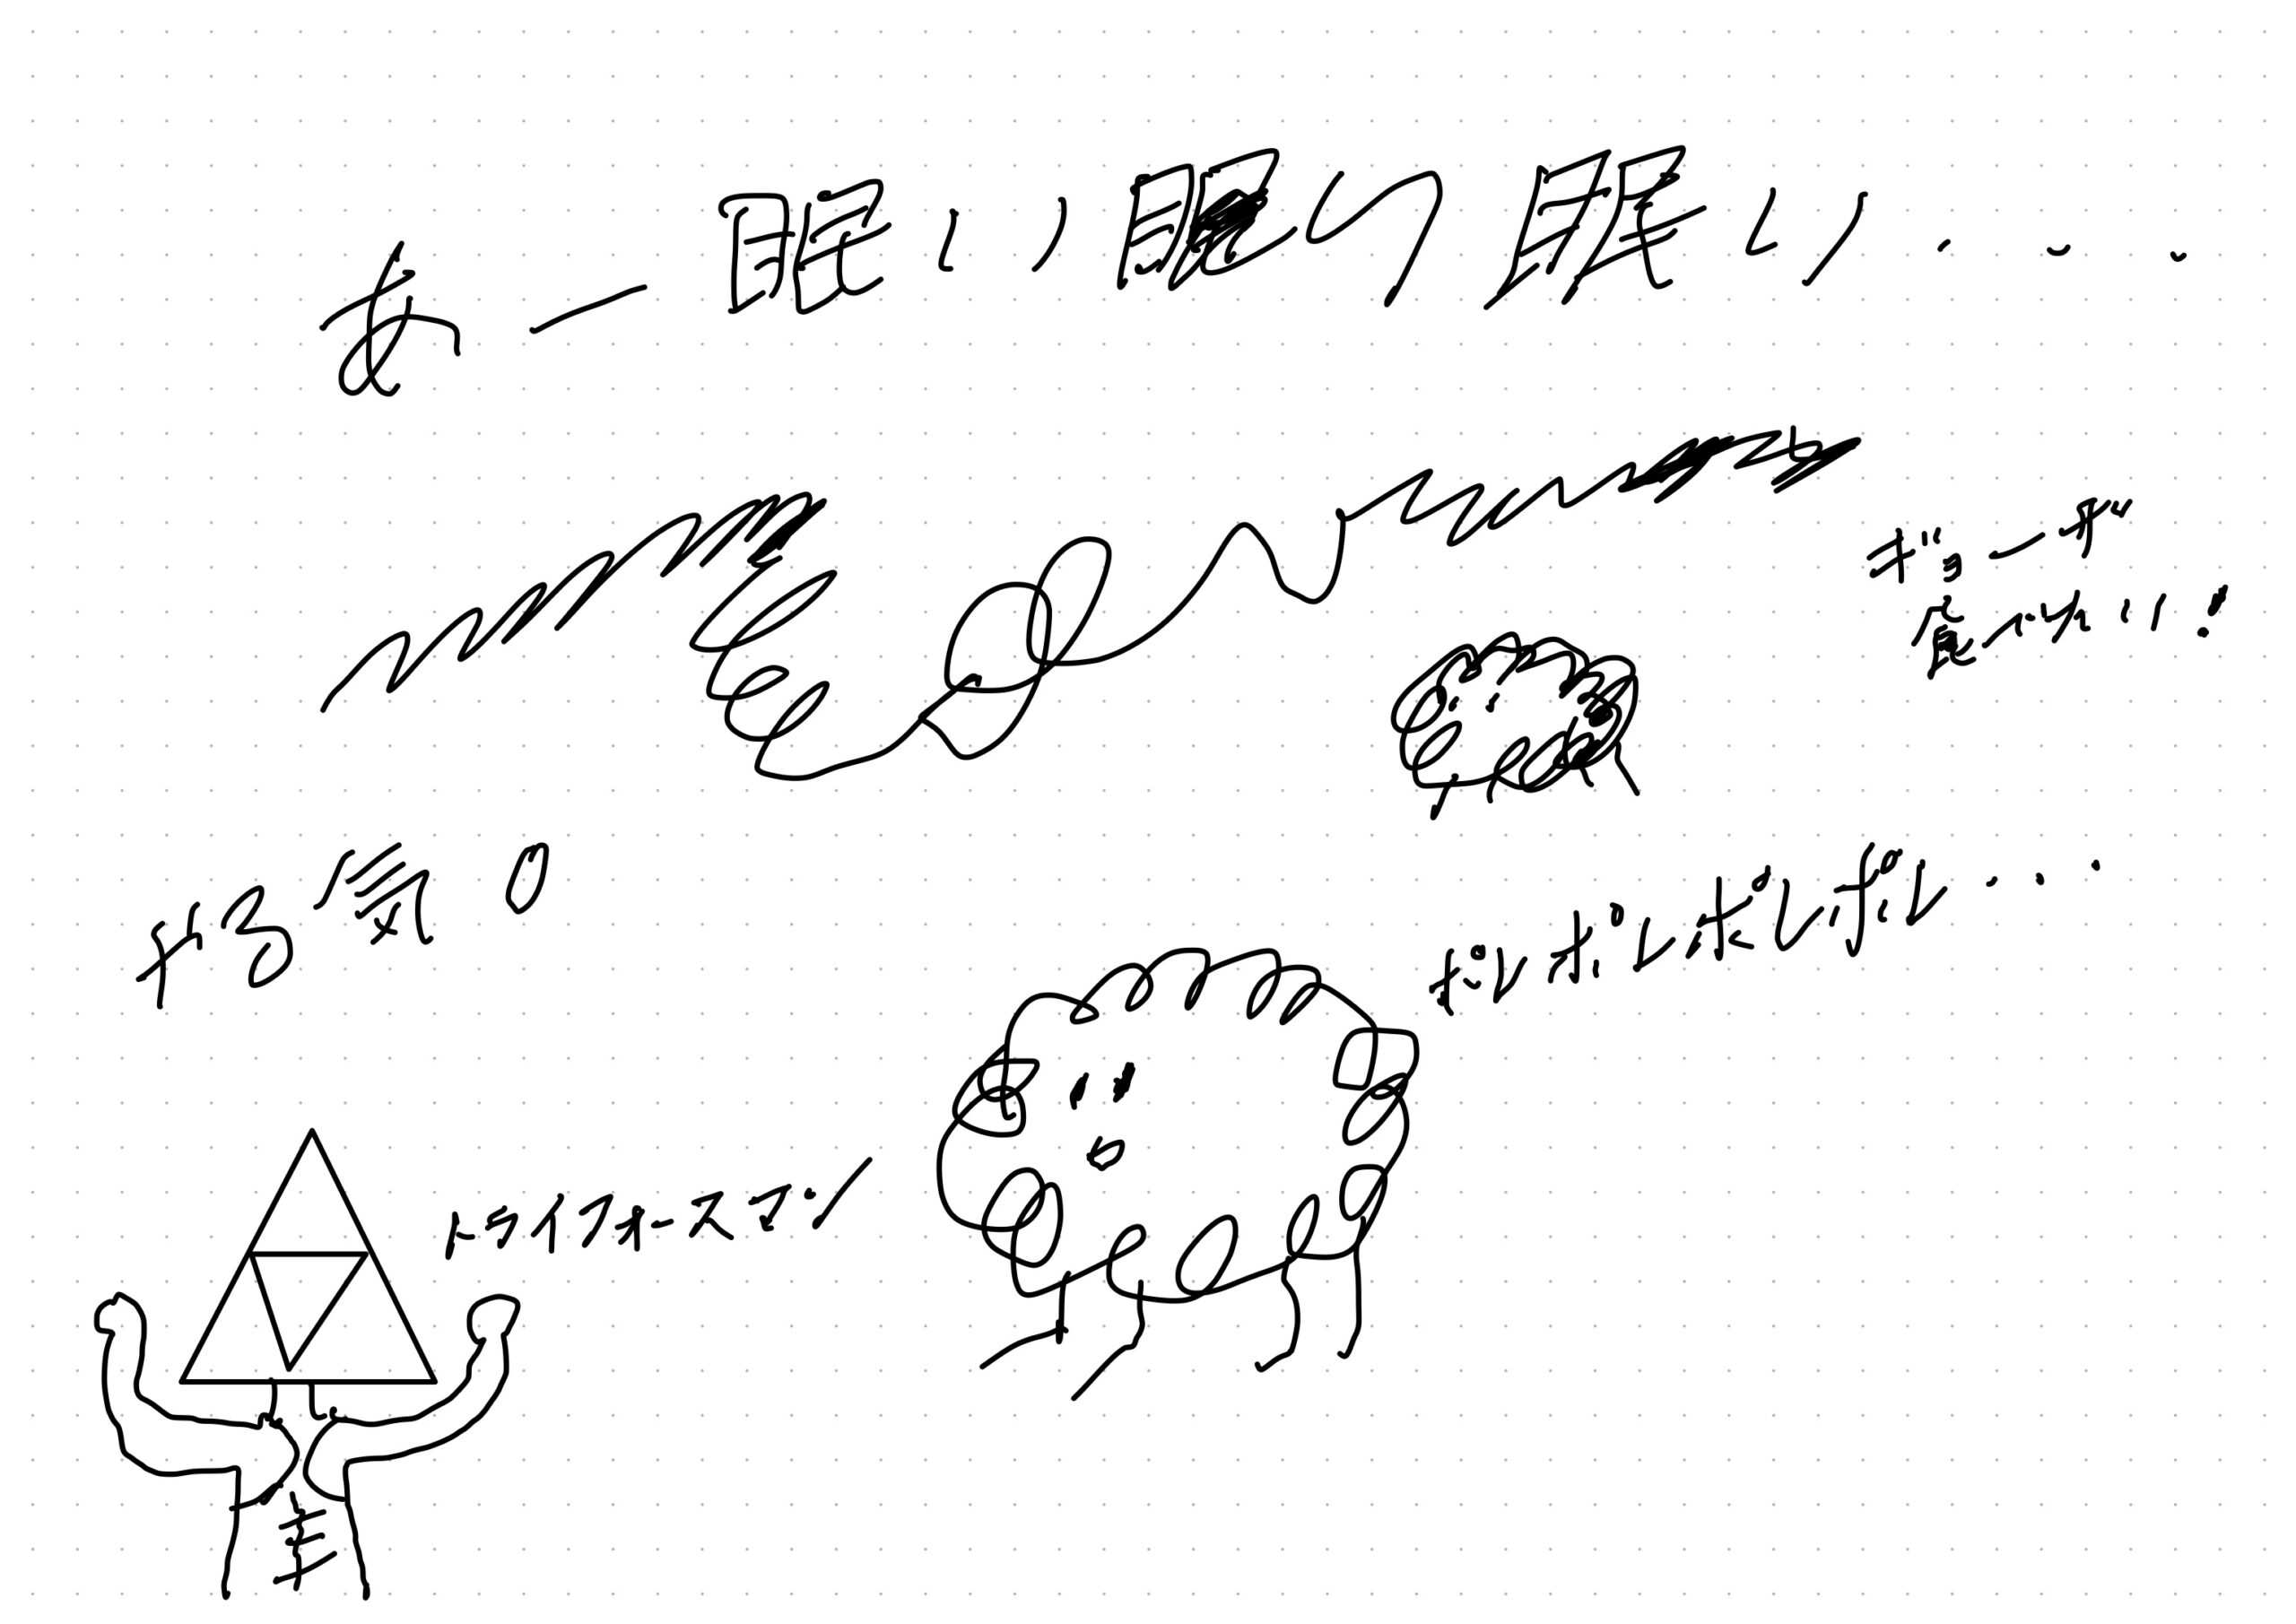 あー眠い眠い眠い...
ギョーザ
食べたい!
やる気0
ポレポレポレポレ...
トライフォースマン